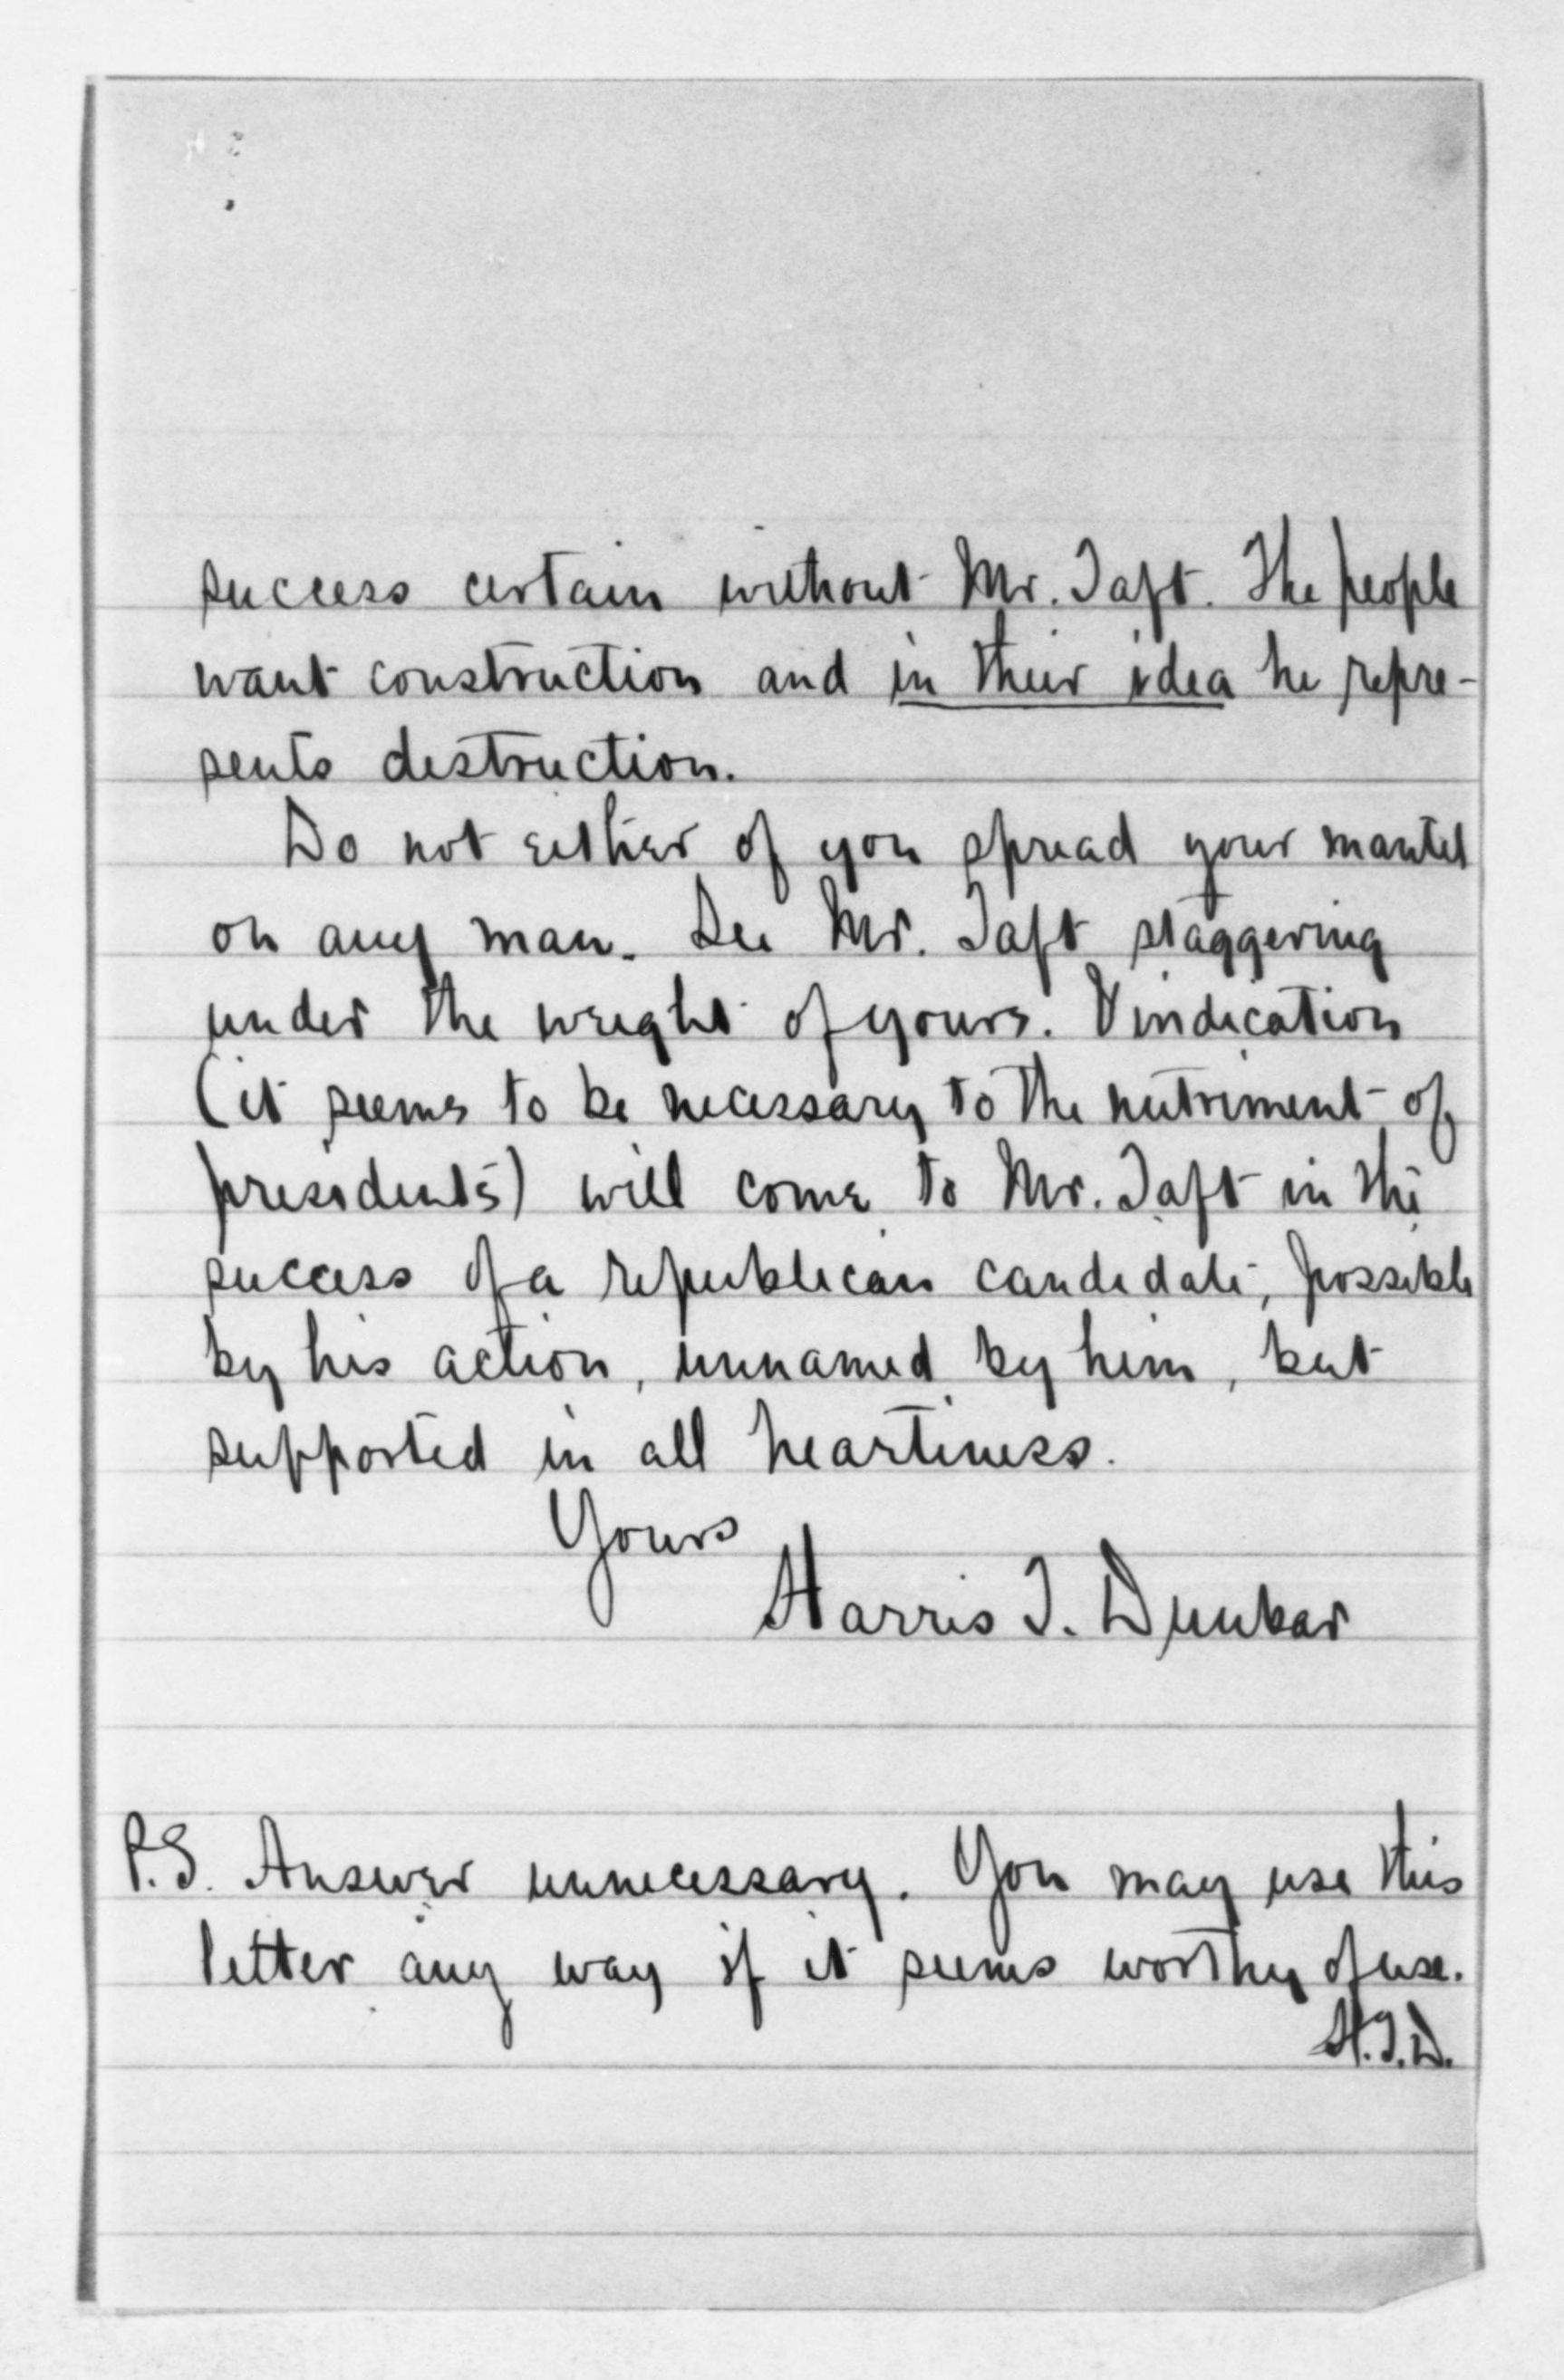 success certain without Mr. Taft. The people
want construction and in their idea he repre-
sents destruction.
Do not either of you spread your mantel
on any man. See Mr. Taft staggering
under the weight of yours. Vindication
(it seems to be necessary to the nutriment of
presidents) will come to Mr. Taft in the
success of a republican candidate, possible
by his action, unnamed by him, but
supported in all heartiness.
Yours
Harris T. Dunbar
P.S. Answer unnecessary. You may use this
letter any way if it seems worthy of use.
H.T.D.